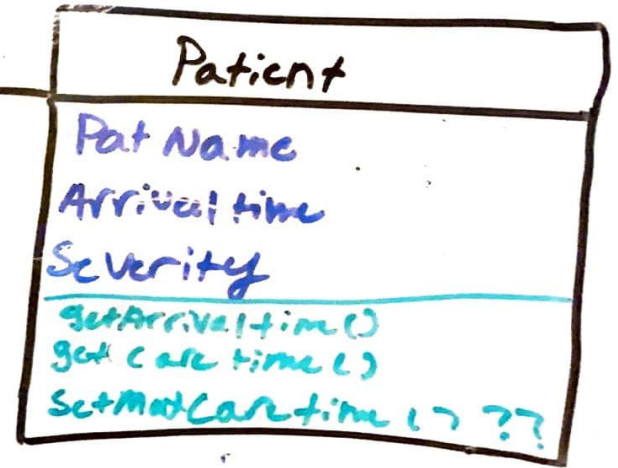 Patient
Pat Name
Arrival time
Severity
getArrivaltime()
get Care time()
Caretime () ??